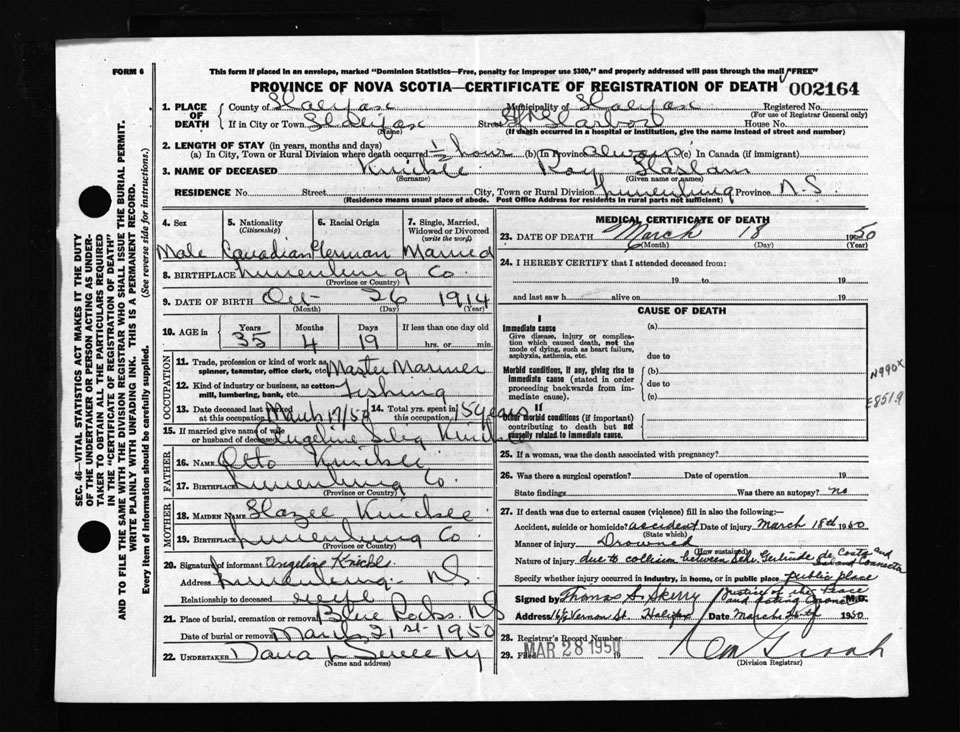 FORM 6
This form if placed in an envelope, marked "Dominion Statistics—Free, penalty for improper use $300," and properly addressed will pass through the mail "FREE"
PROVINCE OF NOVA SCOTIA—CERTIFICATE OF REGISTRATION OF DEATH 002164
1. PLACE OF DEATH
County of Halifax Municipality of Halifax Registered No.
(For use of Registrar General only)
If in City or Town Halifax Street Harbor House No.
(Name) (If death occurred in a hospital or institution, give the name instead of street and number)
2. LENGTH OF STAY (in years, months and days)
(a) In City, Town or Rural Division where death occurred 1/2 hour (b) In Province always (c) In Canada (if immigrant)
3. NAME OF DECEASED Knickle Roy Haslam
(Surname) (Given name or names)
RESIDENCE No. Street City, Town or Rural Division Lunenburg Province N.S.
(Residence means usual place of abode. Post Office Address for residents in rural parts not sufficient)
4. Sex 5. Nationality (Citizenship) 6. Racial Origin 7. Single, Married, Widowed or Divorced (write the word)
Male Canadian German Married
8. BIRTHPLACE Lunenburg Co.
(Province or Country)
9. DATE OF BIRTH Oct 26 1914
(Month) (Day) (Year)
10. AGE in Years Months Days If less than one day old
35 4 19 hrs. or min.
OCCUPATION
11. Trade, profession or kind of work as spinner, teamster, office clerk, etc. Master Mariner
12. Kind of industry or business, as cotton mill, lumbering, bank, etc. Fishing
13. Date deceased last worked at this occupation March 17/50 14. Total yrs. spent in this occupation 15 years
15. If married give name of wife or husband of deceased Angeline Knickle
FATHER
16. NAME Otto Knickle
17. BIRTHPLACE Lunenburg Co.
(Province or Country)
MOTHER
18. MAIDEN NAME Hazel Knickle
19. BIRTHPLACE Lunenburg Co.
(Province or Country)
20. Signature of informant Angeline Knickle
Address Lunenburg N.S
Relationship to deceased wife
21. Place of burial, cremation or removal Blue Rocks NS
Date of burial or removal March 21st 1950
22. UNDERTAKER
(Name and address)
MEDICAL CERTIFICATE OF DEATH
23. DATE OF DEATH March 18 1950
(Month) (Day) (Year)
24. I HEREBY CERTIFY that I attended deceased from:
19 to 19
and last saw h alive on 19
CAUSE OF DEATH
I
Immediate cause (a)
Give disease, injury or complication which caused death, not the mode of dying, such as heart failure, asphyxia, asthenia, etc. due to
Morbid conditions, if any, giving rise to immediate cause (stated in order proceeding backwards from immediate cause). (b)
due to
(c)
N990X
E851.9
II
Other morbid conditions (if important) contributing to death but not causally related to immediate cause.
25. If a woman, was the death associated with pregnancy?
26. Was there a surgical operation? Date of operation 19
State findings Was there an autopsy? no
27. If death was due to external causes (violence) fill in also the following:—
Accident, suicide or homicide? accident Date of injury March 18th 1950
(State which)
Manner of injury Drowned
(How sustained)
Nature of injury due to collision between Schr. Gertrude de Costa and Island Connector
Specify whether injury occurred in industry, in home, or in public place public place
Signed by Thomas S. Skerry Justice of the Peace and Acting Coroner M.D.
Address Vernon St. Halifax Date March 1950
28. Registrar's Record Number
29. Filed MAR 28 1950 19
(Division Registrar)
SEC. 46—VITAL STATISTICS ACT MAKES IT THE DUTY
OF THE UNDERTAKER OR PERSON ACTING AS UNDER-
TAKER TO OBTAIN ALL THE PARTICULARS REQUIRED
IN THE "CERTIFICATE OF REGISTRATION OF DEATH"
AND TO FILE THE SAME WITH THE DIVISION REGISTRAR WHO SHALL ISSUE THE BURIAL PERMIT.
WRITE PLAINLY WITH UNFADING INK. THIS IS A PERMANENT RECORD.
Every item of information should be carefully supplied. (See reverse side for instructions.)